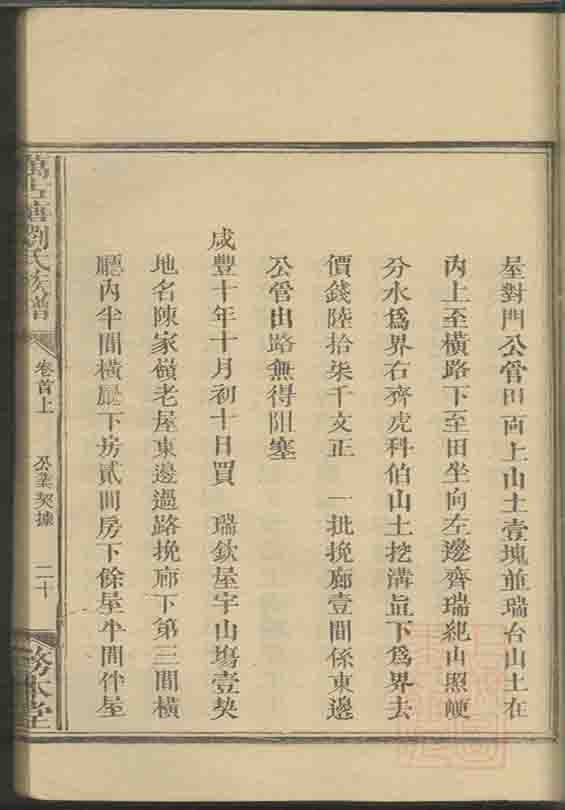 屋對門公管田面上山土壹塊並瑞台山土在
內上至橫路下至田坐向左邊齊瑞紀山照崠
分水為界右齊虎科伯山土挖溝直下為界去
價錢陸拾柒千文正 一批挽廊壹間係東邊
公管出路無得阻塞
咸豐十年十月初十日買 瑞欽屋宇山塲壹契
地名陳家嶺老屋東邊過路挽廊下第三間橫
廳內半間橫廳下房貳間房下餘屋半間伴屋
萬古塘劉氏族譜
卷首上
公業契據
二十
務本堂